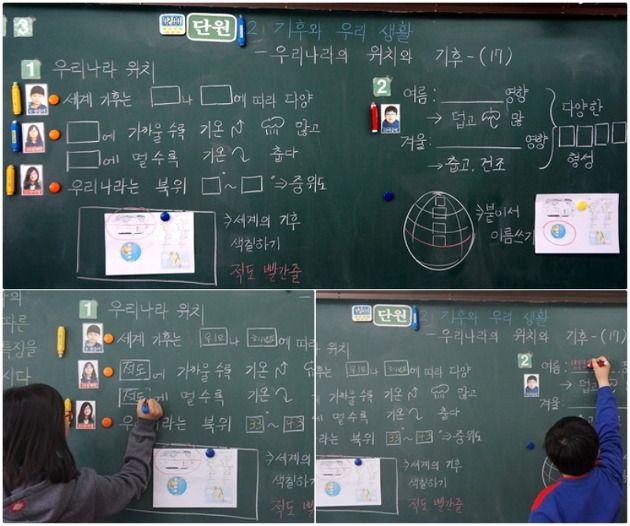 3 단원 2) 기후와 우리 생활
- 우리나라의 위치와 기후 - (17)
1 우리나라 위치
세계 기후는 □나 □에 따라 다양
□에 가까울수록 기온↗ 많고
□에 멀수록 기온↘ 춥다
우리나라는 북위 □°~□° ⇒ 중위도
⇒ 세계의 기후
색칠하기
적도 빨간줄
2
여름: ________ 영향
→ 덥고 많
겨울: ________ 영향
→ 춥고, 건조
다양한
□□□□
형성
⇒ 붙이서
이름쓰기
1 우리나라 위치
세계 기후는 나 에 따라 다양
적도에 가까울수록 기온
적도에 멀수록 기온
우 라는 북위 33°~43
⇒ 세계의
색칠하
적도 빨
단원 2) 기후와 우리 생활
- 우리나라의 위치와 기후 - (17)
위치
는 나 에 따라 다양
가까울수록 기온 많고
멀수록 기온 춥다
는 북위 33°~43 ⇒ 중위도
⇒ 세계의 기후
색칠하기
적도 빨간줄
2
여름:
→ 덥고
겨울: